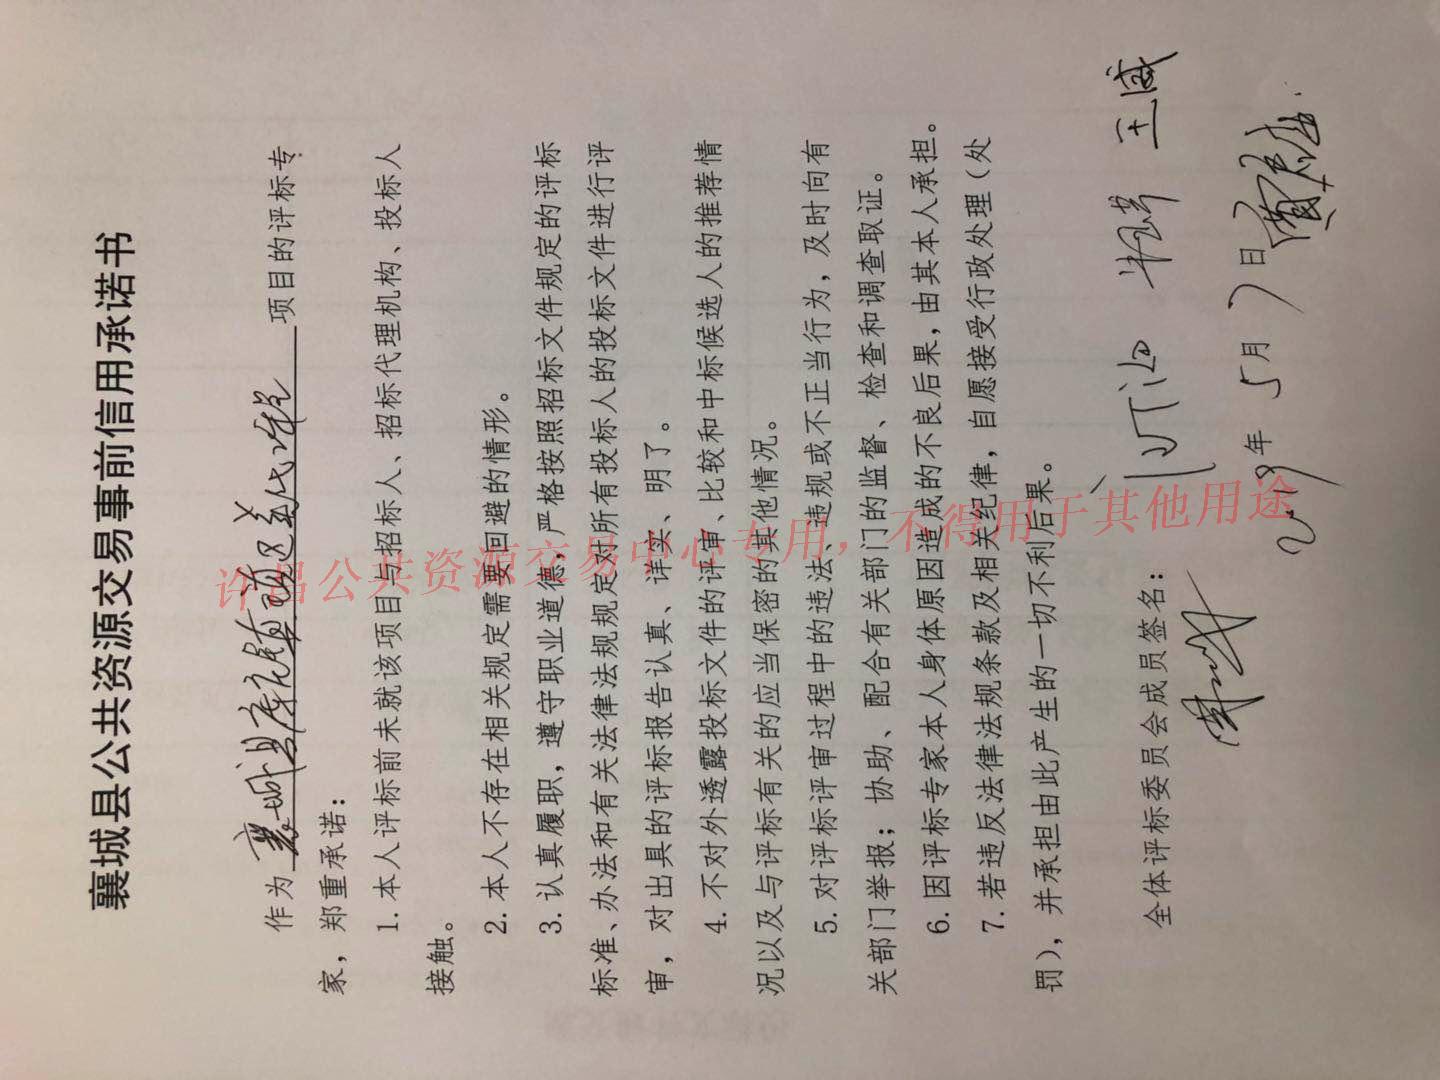 襄城县公共资源交易事前信用承诺书
作为襄城县 项目的评标专
家，郑重承诺：
1.本人评标前未就该项目与招标人、招标代理机构、投标人
接触。
2.本人不存在相关规定需要回避的情形。
3.认真履职，遵守职业道德，严格按照招标文件规定的评标
标准、办法和有关法律法规规定对所有投标人的投标文件进行评
审，对出具的评标报告认真、详实、明了。
4.不对外透露投标文件的评审、比较和中标候选人的推荐情
况以及与评标有关的应当保密的其他情况。
5.对评标评审过程中的违法、违规或不正当行为，及时向有
关部门举报；协助、配合有关部门的监督、检查和调查取证。
6.因评标专家本人身体原因造成的不良后果，由其本人承担。
7.若违反法律法规条款及相关纪律，自愿接受行政处理（处
罚），并承担由此产生的一切不利后果。
全体评标委员会成员签名：
王威
2019年 5月 7日
许昌公共资源交易中心专用，不得用于其他用途